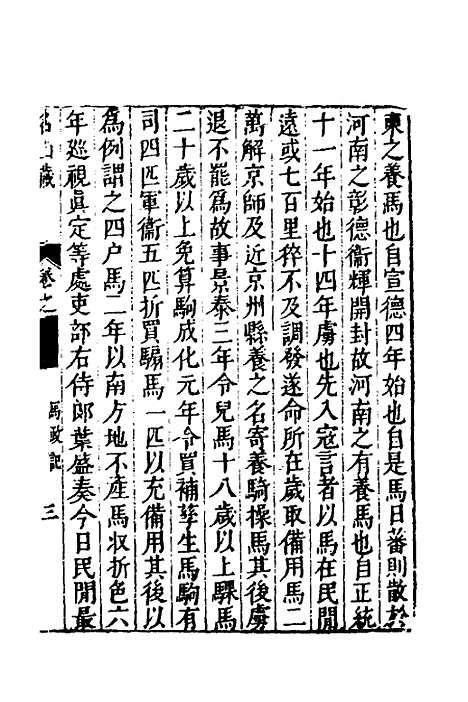 東之養馬也自宣德四年始也自是馬日蕃則散於
河南之彰德衞輝開封故河南之有養馬也自正統
十一年始也十四年虜也先入寇言者以馬在民閒
遠或七百里猝不及調發遂命所在歲取備用馬二
萬解京師及近京州縣養之名寄養騎操馬其後虜
退不能罷為故事景泰三年令兒馬十八歲以上騍馬
二十歲以上免算駒成化元年令買補孳生馬駒有
司四匹軍衞五匹折買騸馬一匹以充備用其後以
為例謂之四户馬二年以南方地不産馬収折色六
年廵視眞定等處吏部右侍郎葉盛奏今日民閒最
名山藏 卷之 馬政記 三